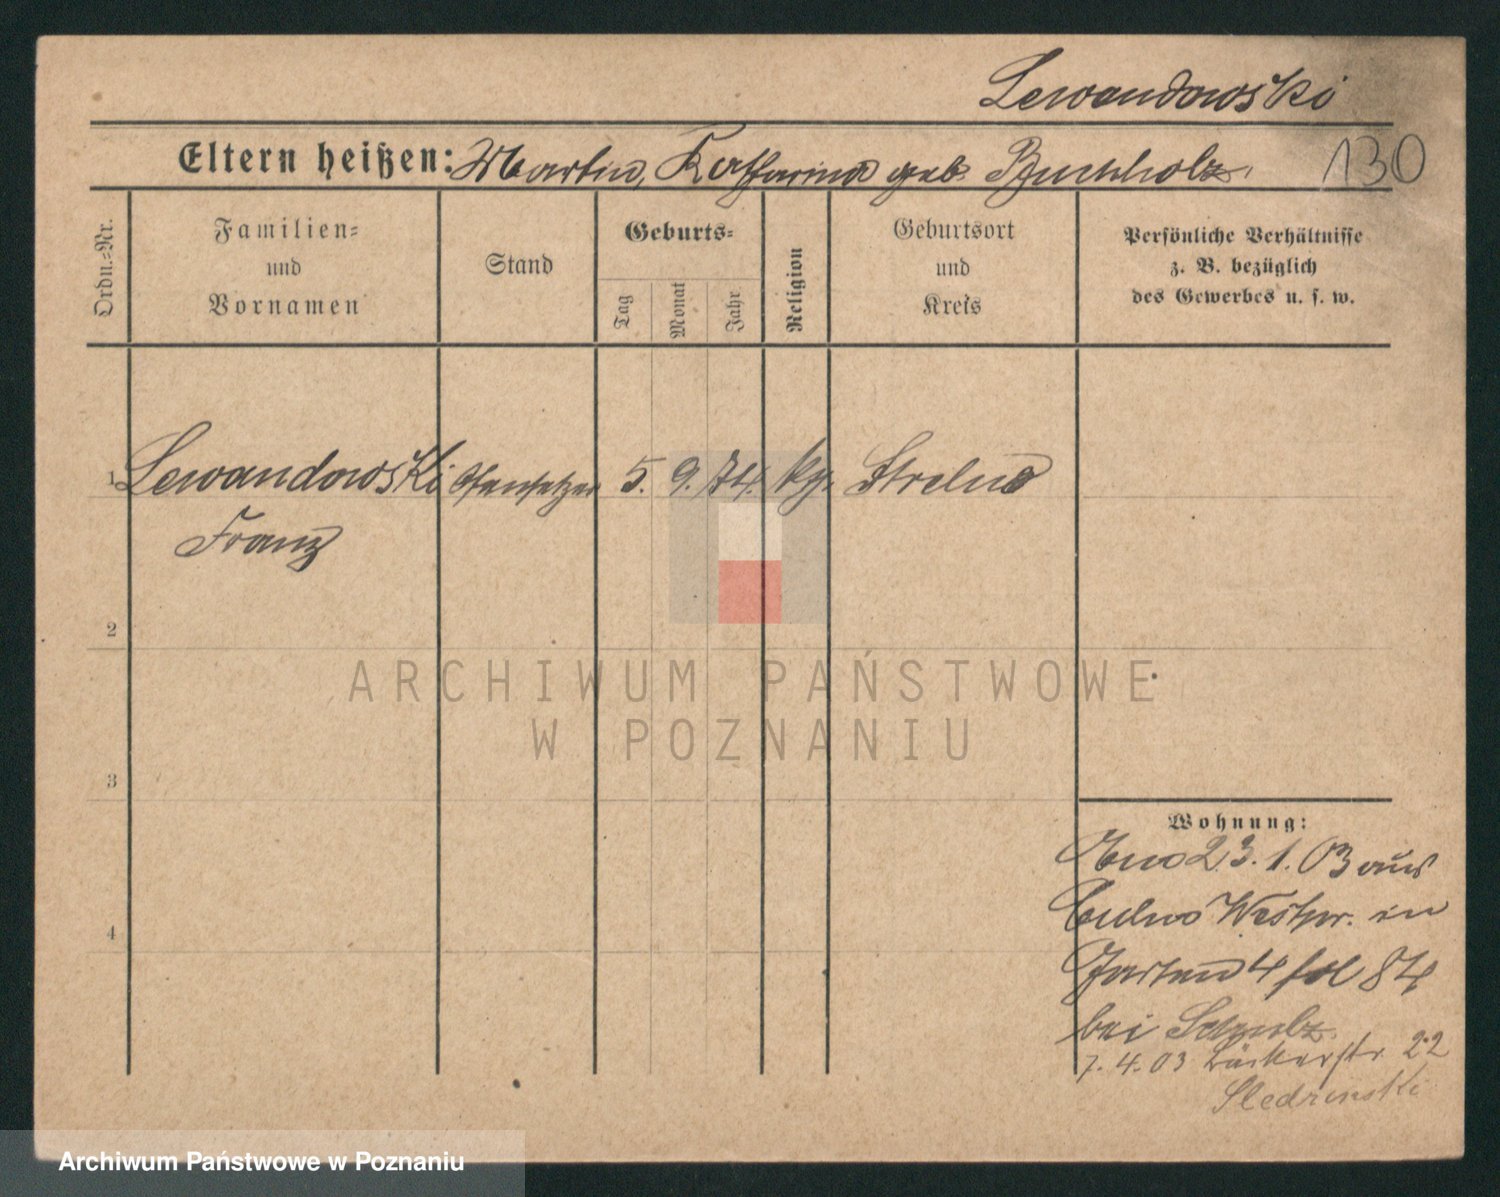 Lewandowski
Eltern heißen: Martin, Katharina geb. Buchholz.
130
Ordn.=Nr.
Familien=
und
Vornamen
Stand
Geburts=
Tag
Monat
Jahr
Religion
Geburtsort
und
Kreis
Persönliche Verhältnisse
z. B. bezüglich
des Gewerbes u. s. w.
1 Lewandowski Ofensetzer 5. 9. 74. kg. Strelno
Franz
2
ARCHIWUM PAŃSTWOWE
W POZNANIU
3
Wohnung:
23. 1. 03 aus
Culm Westpr. in
4
4 fol 84
bei Schulz.
7. 4. 03 Bäckerstr. 22
Sledzinski
Archiwum Państwowe w Poznaniu